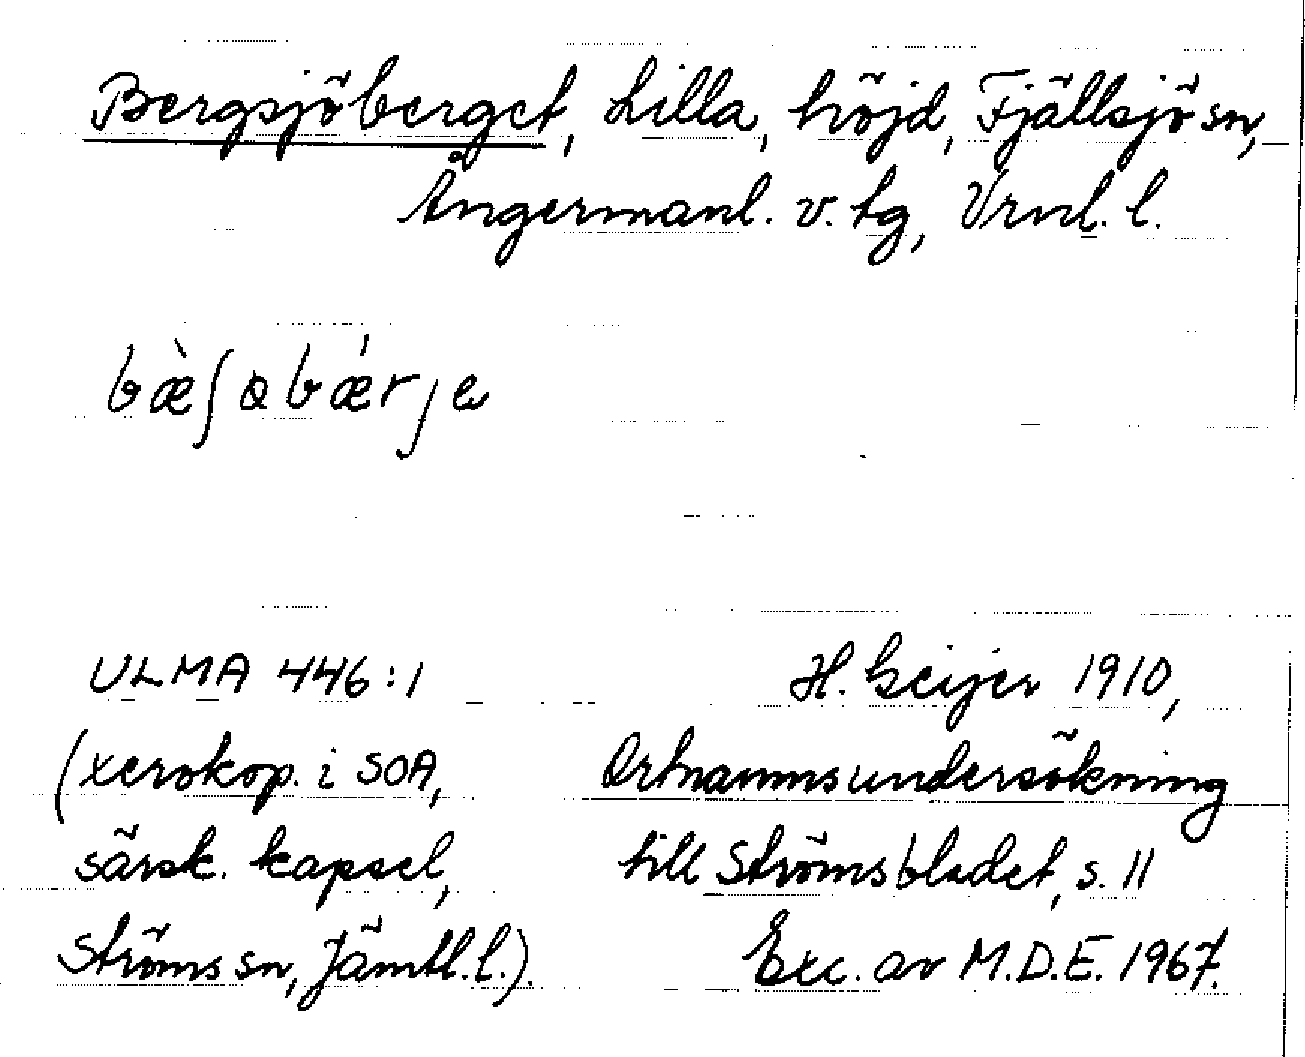 Bergsjöberget, Lilla, höjd, Fjällsjö sn,
Ångermanl. v. tg, Vrnl. l.
bæ̀ʃɵbǽrje
ULMA 446:1
H. Geijer 1910,
(xerokop. i SOA,
Ortnamnsundersökning
särsk. kapsel,
till Strömsbladet, s. 11
Ströms sn, Jämtl. l.).
Exc. av M.D.E. 1967.